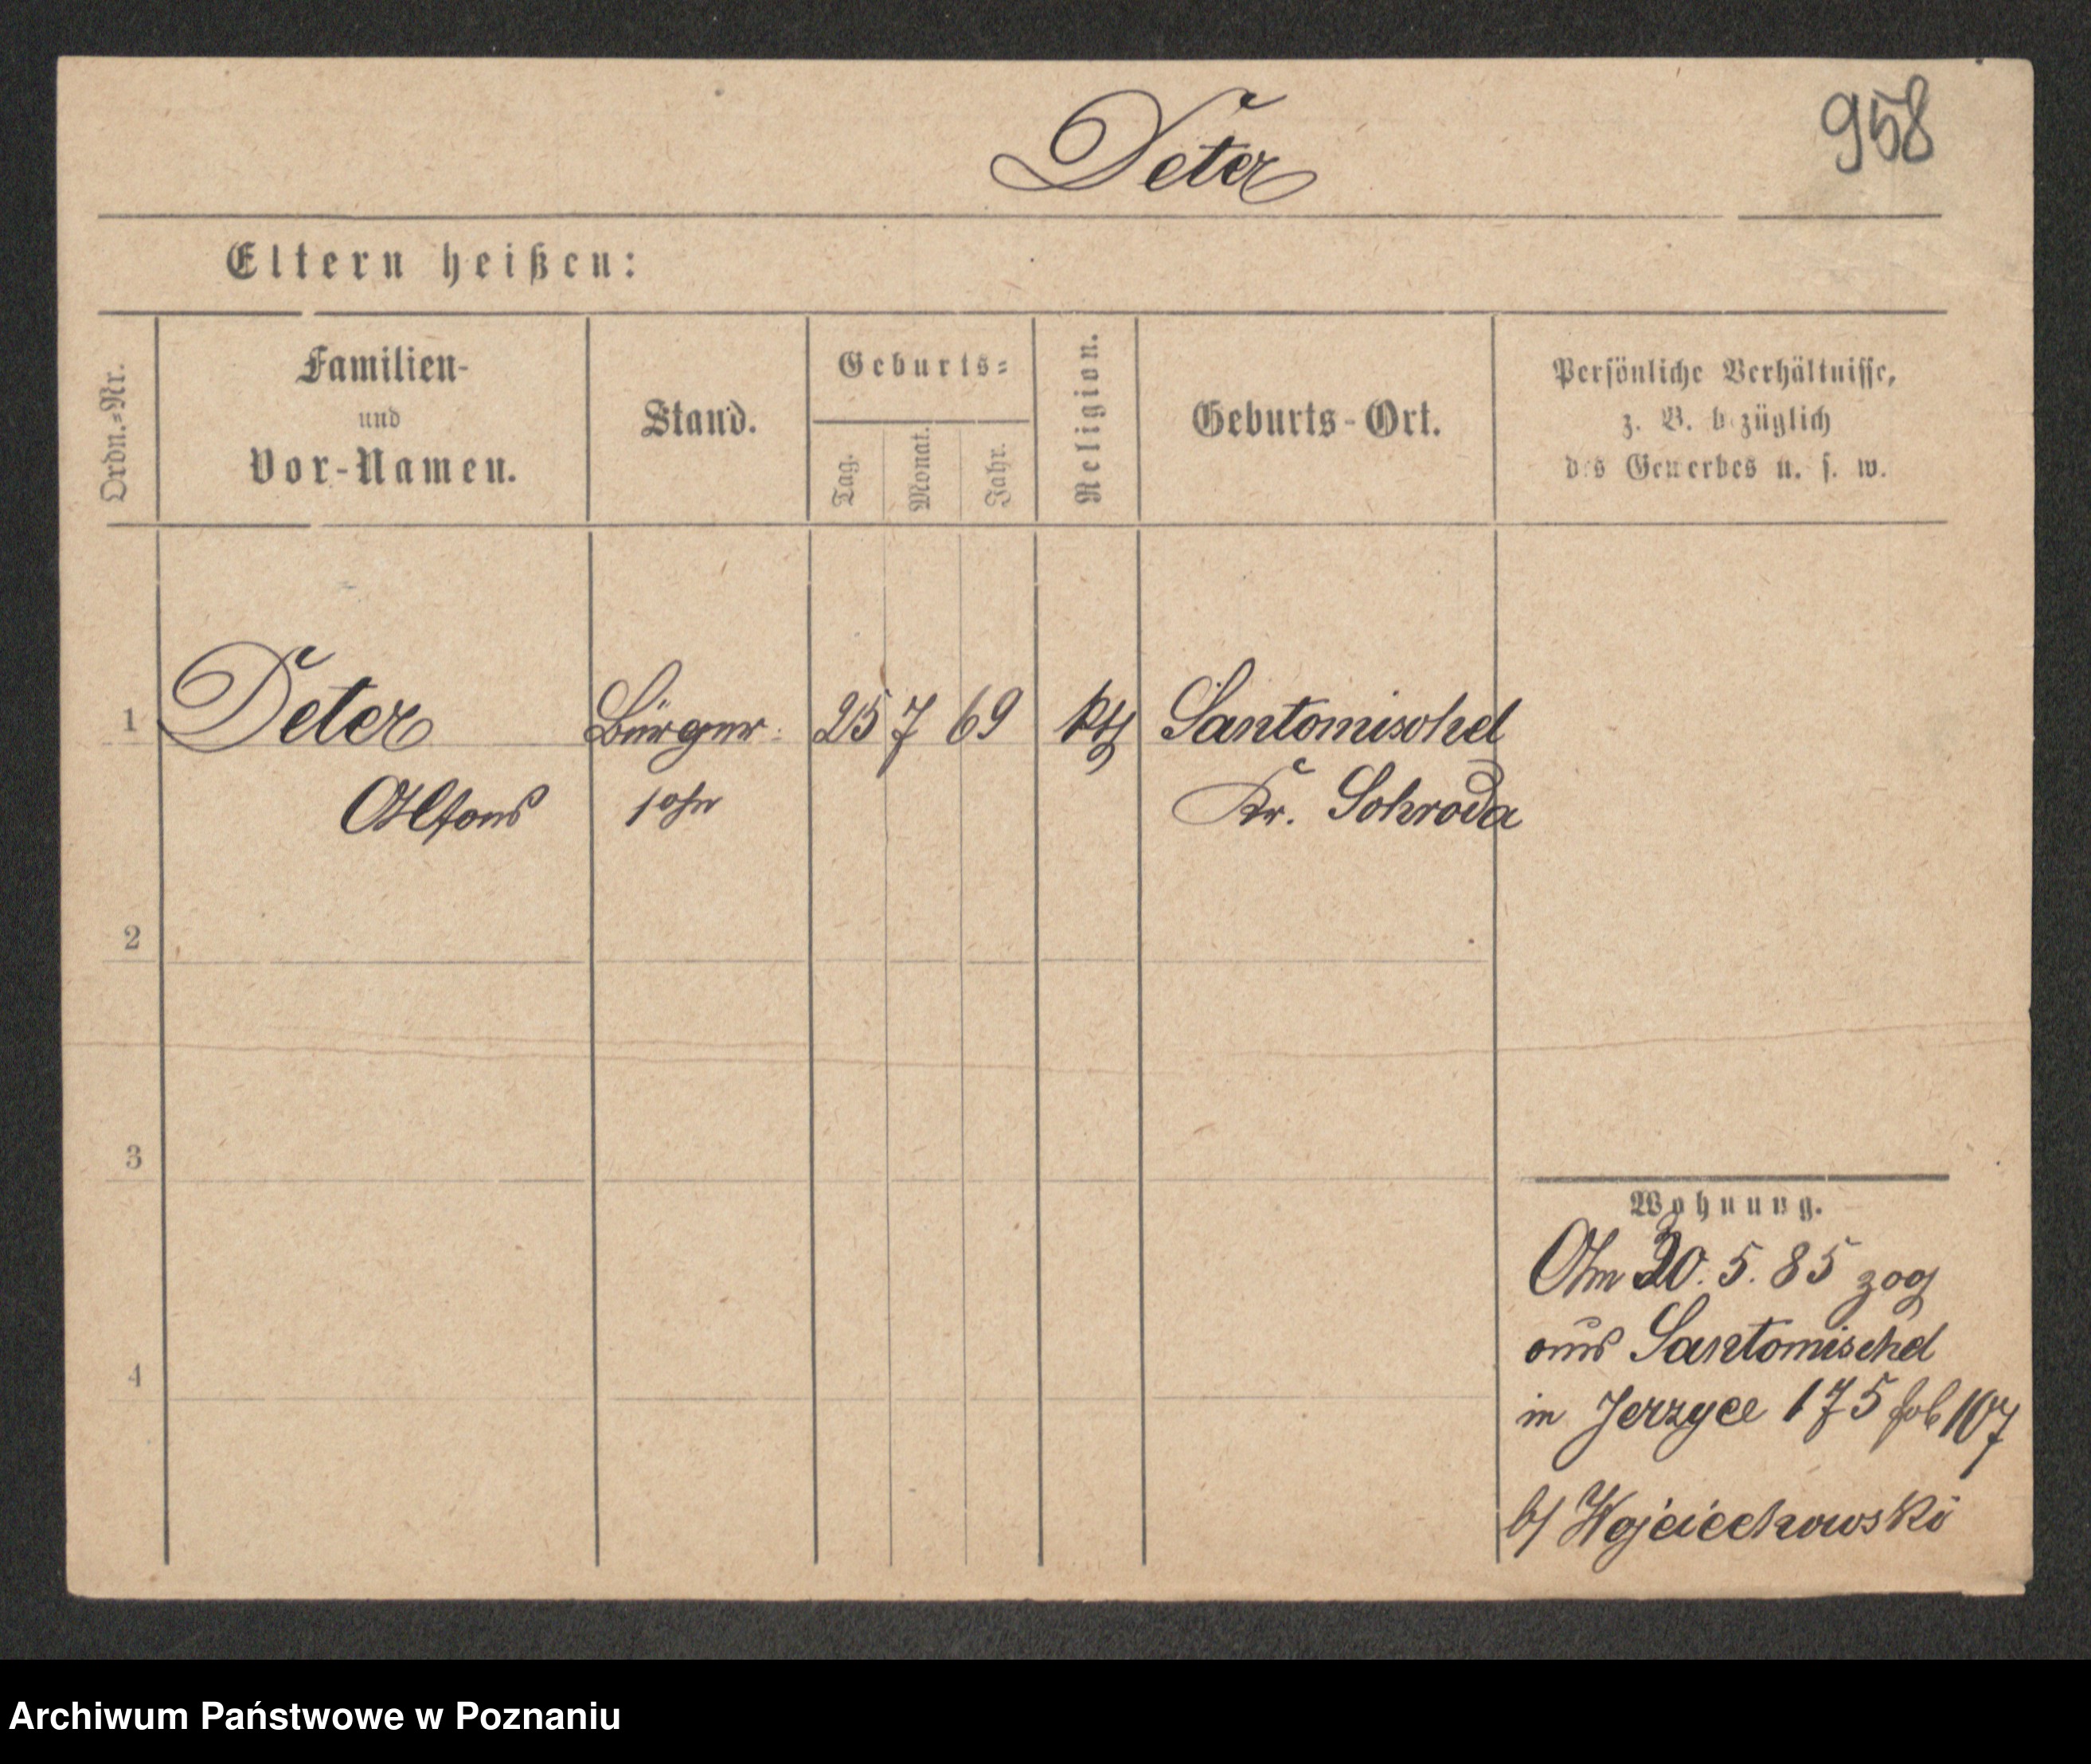 Deter
958
Eltern heißen:
Ordn.=Nr.
Familien-
und
Vor-Namen.
Stand.
Geburts=
Tag.
Monat.
Jahr.
Religion.
Geburts-Ort.
Persönliche Verhältnisse,
z. B. bezüglich
des Gewerbes u. s. w.
1 Deter Bürger- 25 7 69 kth Santomischel
Alfons sohn Kr. Schroda
2
3
4
Wohnung.
Am 30. 5. 85 zog
aus Santomischel
in Jerzyce 175 107
b/ Wojciechowski
Archiwum Państwowe w Poznaniu